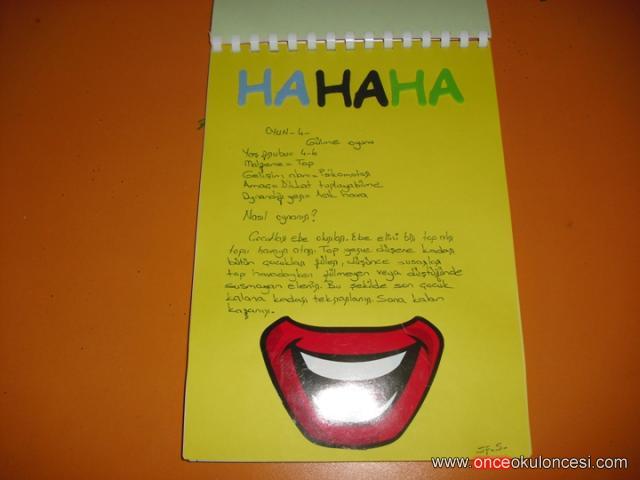 HAHAHA
OYUN-4-
Gülme oyunu
Yaş grubu= 4-6
Malzeme= Top
Gelişim alanı= Psikomotor
Amaç= Dikkat toplayabilme
Oynandığı yer= Açık hava
Nasıl oynanır?
Çocuklar ebe olurlar. Ebe elini bir top alır
topu havaya atar. Top yere düşene kadar
bütün çocuklar güler, düşünce susarlar
top havadayken gülmeyen veya düştüğünde
susmayan elenir. Bu şekilde son çocuk
kalana kadar tekrarlanır. Sona kalan
kazanır.
www.onceokuloncesi.com